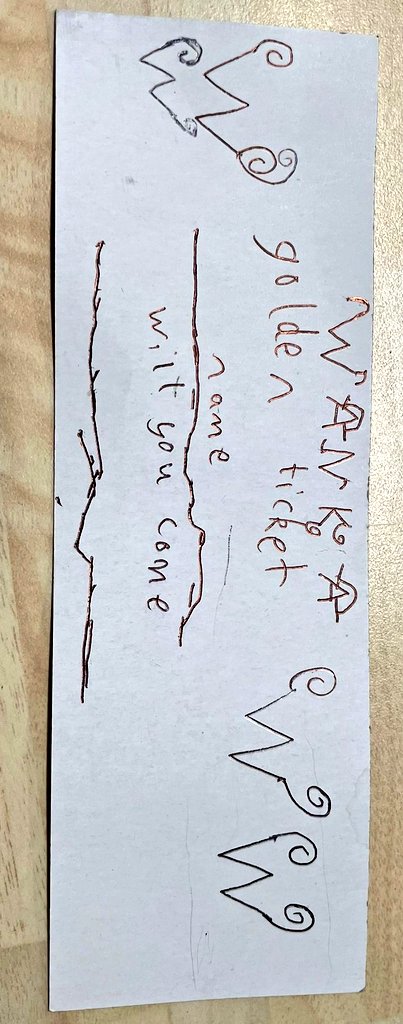 W W WANKA W W
golden ticket
name
wilt you come